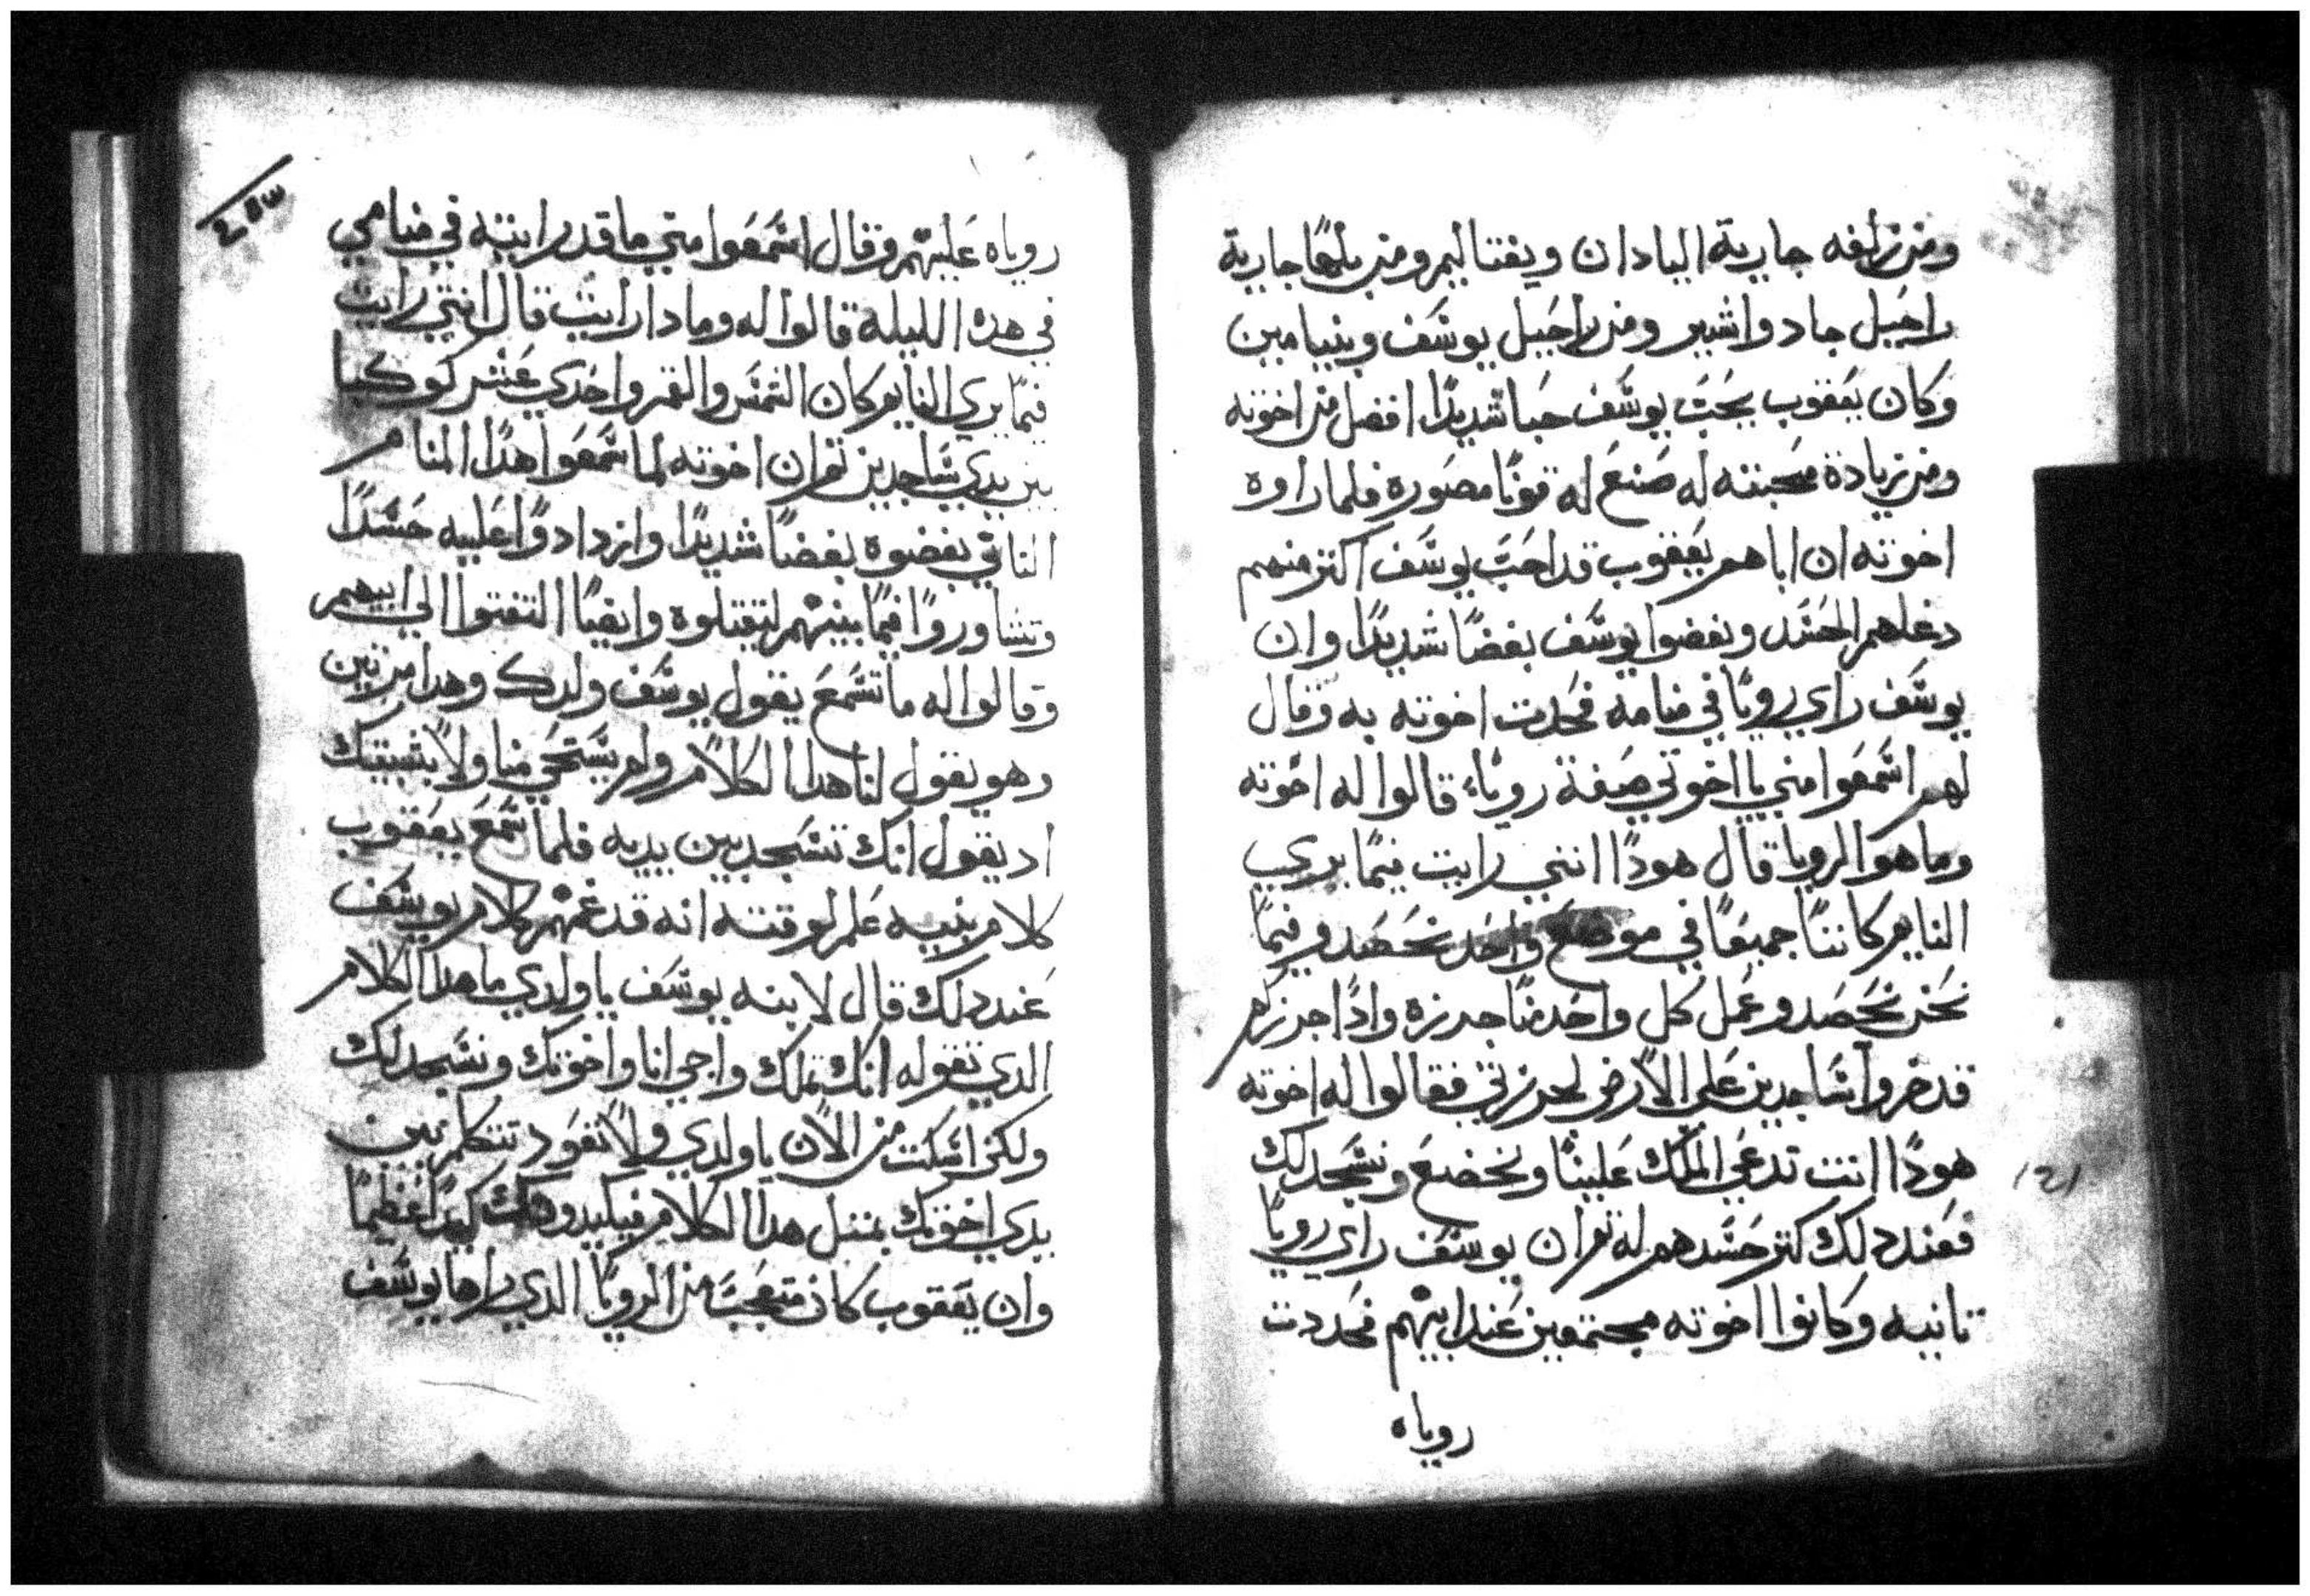 ومن زلفه جارية اليادان ويفتاليم ومن بلها جارية
راحيل جاد واشير ومن راحيل يوسف وبنيامين
وكان يعقوب يحب يوسف حبا شديدًا افضل من اخوته
ومن زيادة محبته له صنع له قونًا مصوره فلما راوه
اخوته ان اباهم يعقوب قد احب يوسف اكتر منهم
دخلهم الحسد وبغضوا يوسف بغضًا شديدًا وان
يوسف راي رويًا في منامه فحدت اخوته به وقال
لهم اسمعوا مني يا اخوتي صفة روياء قالوا له اخوته
وما هو الرويا قال هودًا انني رايت فيما يري
النايم كاننا جميعًا في موضع واحد نحصد وفيما
نحن نحصد وعمل كل واحد منا جرزه وادًا جرزكم
قد خروا ساجدين علي الارض لجرزتي فقالوا له اخوته
هودًا انت تدعي الملك علينا ونخضع ونسجد لك
فعند دلك كتر حسدهم له تم ان يوسف راي رويا
تانيه وكانوا اخوته مجتمعين عند ابيهم فحددت
روياه
١٢١
٢٥٣
روياه عليهم وقال اسمعوا مني ما قد رايته في منامي
في هده الليلة قالوا له وما دا رايت قال انني رايت
فيما يري النايم كان الشمس والقمر واحدي عشر كوكبا
بين يدي ساجدين تم ان اخوته لما سمعوا هدا المنام
التاني بغضوه بغضًا شديدًا وازدادوا عليه حسدًا
وتشاوروا فيما بينهم ليقتلوه وايضًا التفتوا الي ابيهم
وقالوا له ما تسمع يقول يوسف ولدك وهدا مرتين
وهو يقول لنا هدا الكلام ولم يستحي منا ولا
اد يقول انك تسجد بين يديه فلما سمع يعقوب
كلام بنيه علم لوقته انه قد غمهم كلام يوسف
عند دلك قال لابنه يوسف يا ولدي ما هدا الكلام
الدي تقوله انك تملك واجي انا واخوتك ونسجد لك
ولكن امسكت من الان يا ولدي ولا تعود تتكلم بين
يدي اخوتك بمتل هدا الكلام فيكيدوك كيدًا عظيمًا
وان يعقوب كان متعجب من الرويا الدي راها يوسف